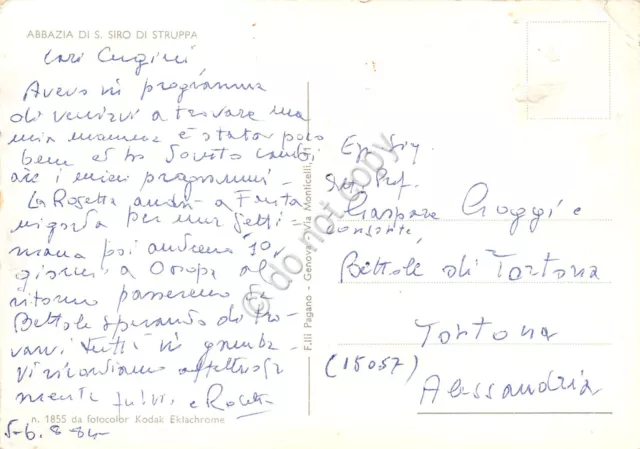 ABBAZIA DI S. SIRO DI STRUPPA
Cari Cugini
Avevo in programma
di venirvi a trovare ma
mia mamma è stata poco
bene ed ho dovuto cambi
are i miei programmi -
La Rosetta andrà a
per una setti-
mana poi andremo 10
giorni a Oropa al
ritorno passeremo da
Bettole sperando di tro
varvi tutti in gamba -
Vi ricordiamo affettuosa
mente e Rosetta
n. 1855 da fotocolor Kodak Ektachrome
5-6. 8 84
F.lli Pagano - Genova - Via Monticelli, 11
© do not copy
Egr Sig.
Prof.
Gaspare Croggi e
consorte
Bettole di Tortona
Tortona
(15057)
Alessandria